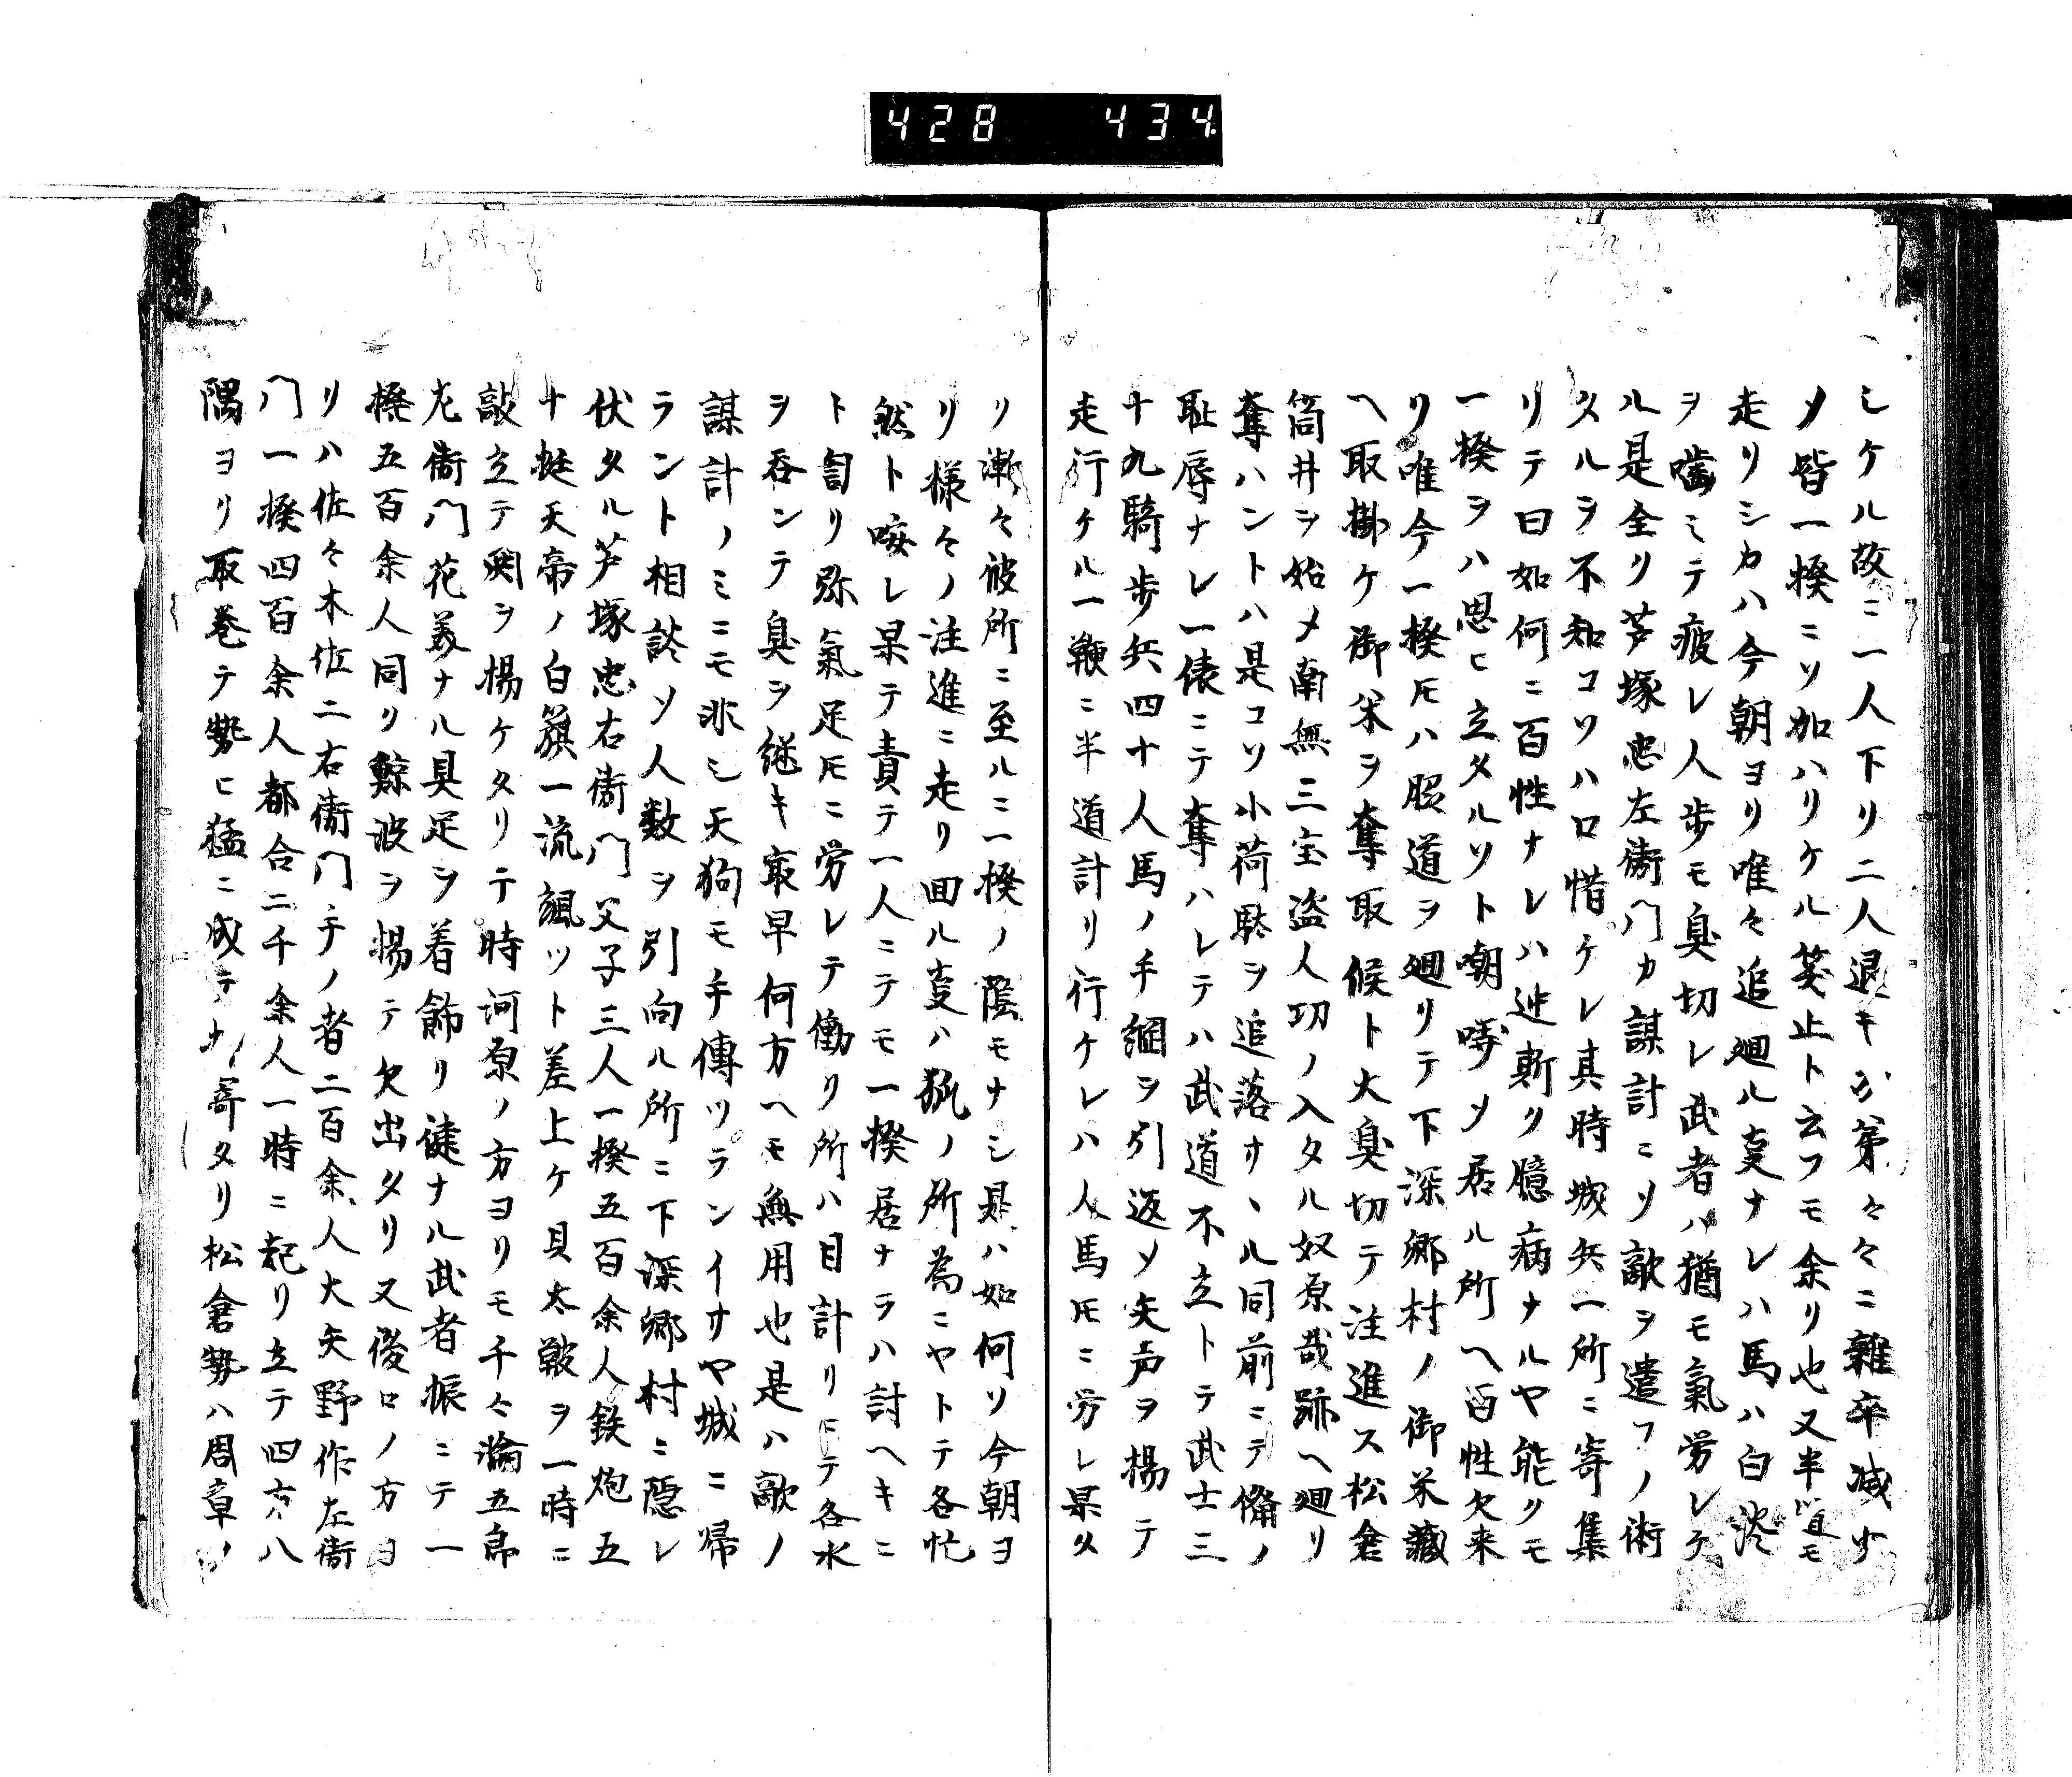 428 434
シケル故ニ一人下リ二人退キ次第々々ニ雑卒減少
メ皆一揆ニソ加ハリケル笑止ト云フモ余リ也又半道モ
走リシカハ今朝ヨリ唯々追廻ル㕝ナレハ馬ハ白淡
ヲ噛ミテ疲レ人歩モ臭切レ武者ハ猶モ氣労レケ
ル是全リ芦塚忠左衛門カ謀計ニソ敵ヲ遣フノ術
タルヲ不知コソハ口惜ケレ其時城兵一所ニ寄集
リテ曰如何ニ百性ナレハ迚斯ク臆病ナルヤ能クモ
一揆ヲハ思ヒ立タルソト嘲哢メ居ル所ヘ百性欠来
リ唯今一揆㲍ハ脇道ヲ廻リテ下深郷村ノ御米藏
ヘ取掛ケ御米ヲ奪取候ト大臭切テ注進ス松倉
筒井ヲ始メ南無三宝盗人功ノ入タル奴原哉跡ヘ廻リ
奪ハントハ是コソ小荷駄ヲ追落サヽル同前ニテ備ノ
耻辱ナレ一俵ニテ奪ハレテハ武道不立トテ武士三
十九騎歩兵四十人馬ノ手綱ヲ引返メ矢声ヲ揚テ
走行ケル一鞭ニ半道計リ行ケレハ人馬㲍ニ労レ果タ
リ漸々彼所ニ至ルニ一揆ノ蔭モナシ是ハ如何ソ今朝ヨ
リ様々ノ注進ニ走リ回ル㕝ハ狐ノ所為ニヤトテ各忙
然ト咹レ果テ責テ一人ニテモ一揆居ナラハ討ヘキニ
ト訇リ弥氣足㲍ニ労レテ働リ所ハ目計リニテ各水
ヲ呑ンテ臭ヲ継キ最早何方ヘモ無用也是ハ敵ノ
謀計ノミニモ非シ天狗モ手傳ツランイサヤ城ニ帰
ラント相談ソ人数ヲ引向ル所ニ下深郷村ニ隠レ
伏タル芦塚忠右衛門父子三人一揆五百余人鉄炮五
十挺天帝ノ白籏一流颯ツト差上ケ貝太皷ヲ一時ニ
敲立テ鬨ヲ揚ケタリテ時河原ノ方ヨリモ千々濤五郎
左衛門花美ナル具足ヲ着飾リ健ナル武者振ニテ一
揆五百余人同リ鯨波ヲ揚テ欠出タリ又後ロノ方ヨ
リハ佐々木佐二右衛門手ノ者二百余人大矢野作左衛
門一揆四百余人都合二千余人一時ニ起リ立テ四方八
隅ヨリ取巻テ勢ヒ猛ニ成テ寄タリ松倉勢ハ周章ノ